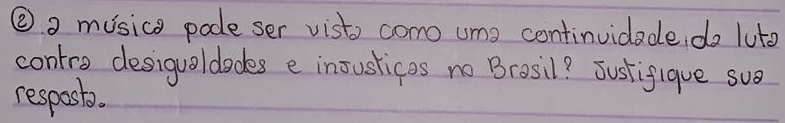 ② a música pode ser vista como uma continuidade da luta
contra desigualdades e injustiças no Brasil? Justifique sua
resposta.